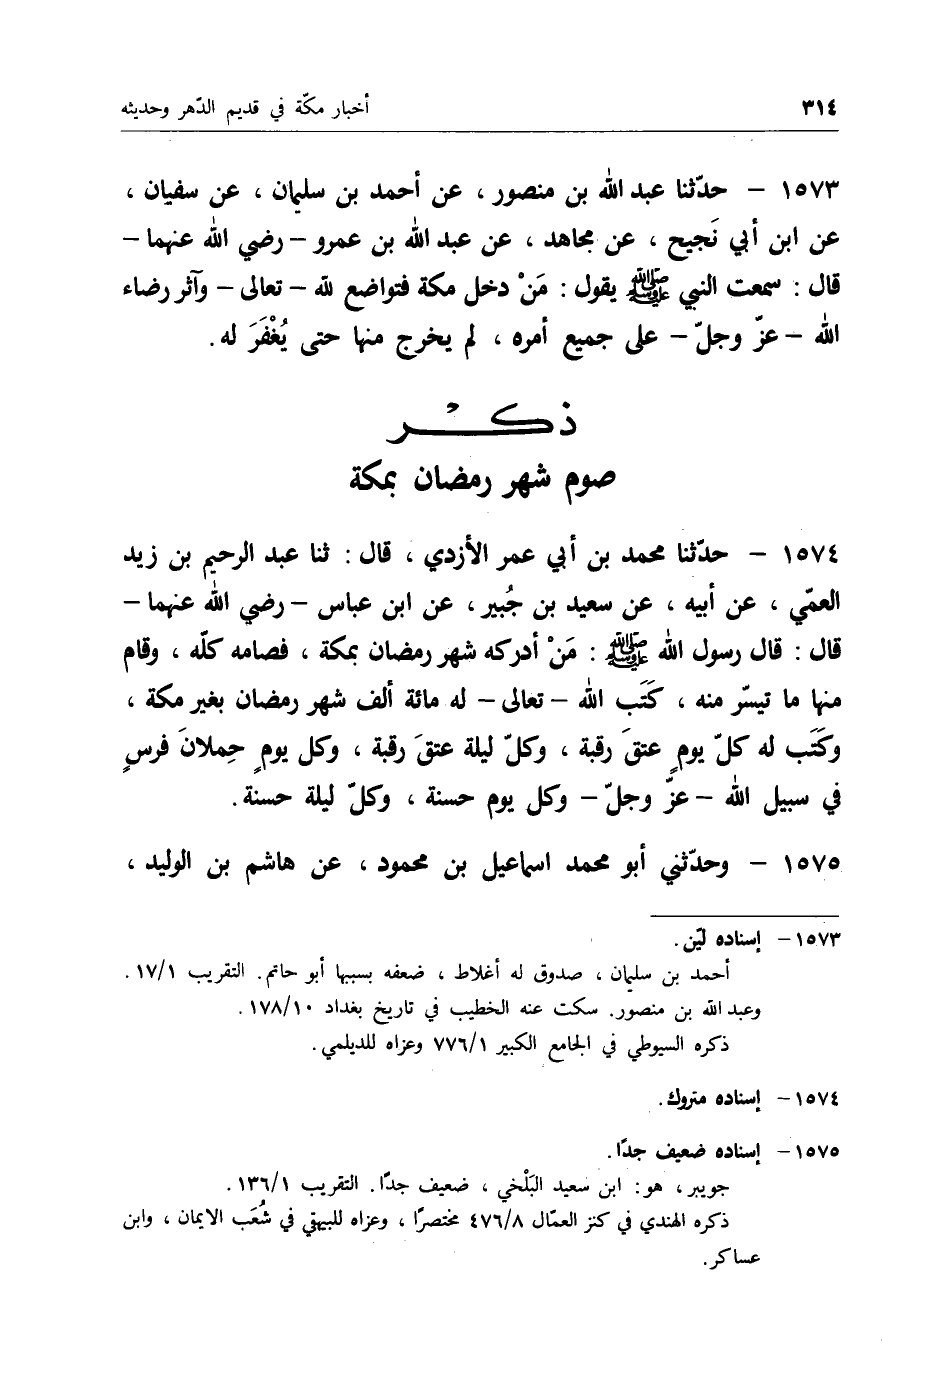 ٣١٤ أخبار مكّة في قديم الدّهر وحديثه
١٥٧٣ – حدّثنا عبد الله بن منصور ، عن أحمد بن سليمان ، عن سفيان ،
عن ابن أبي نَجيح ، عن مجاهد ، عن عبد الله بن عمرو – رضي الله عنهما –
قال : سمعت النبي ﷺ يقول : مَنْ دخل مكة فتواضع لله – تعالى – وآثر رضاء
الله – عزّ وجلّ – على جميع أمره ، لم يخرج منها حتى يُغْفَرَ له .
ذكـــر
صوم شهر رمضان بمكة
١٥٧٤ – حدّثنا محمد بن أبي عمر الأزدي ، قال : ثنا عبد الرحيم بن زيد
العمّي ، عن أبيه ، عن سعيد بن جُبير ، عن ابن عباس – رضي الله عنهما –
قال : قال رسول الله ﷺ : مَنْ أدركه شهر رمضان بمكة ، فصامه كلّه ، وقام
منها ما تيسّر منه ، كَتَب الله – تعالى – له مائة ألف شهر رمضان بغير مكة ،
وكَتَب له كلّ يومٍ عتقَ رقبة ، وكلّ ليلة عتقَ رقبة ، وكل يومٍ حِملانَ فرسٍ
في سبيل الله – عزّ وجلّ – وكل يوم حسنة ، وكلّ ليلة حسنة .
١٥٧٥ – وحدّثني أبو محمد اسماعيل بن محمود ، عن هاشم بن الوليد ،
١٥٧٣ – إسناده ليّن .
أحمد بن سليمان ، صدوق له أغلاط ، ضعفه بسببها أبو حاتم . التقريب ١٧/١ .
وعبد الله بن منصور . سكت عنه الخطيب في تاريخ بغداد ١٧٨/١٠ .
ذكره السيوطي في الجامع الكبير ٧٧٦/١ وعزاه للديلمي .
١٥٧٤ – إسناده متروك .
١٥٧٥ – إسناده ضعيف جدًا .
جويبر ، هو : ابن سعيد البَلْخي ، ضعيف جدًا . التقريب ١٣٦/١ .
ذكره الهندي في كنز العمّال ٤٧٦/٨ مختصرًا ، وعزاه للبيهقي في شُعَب الايمان ، وابن
عساكر .